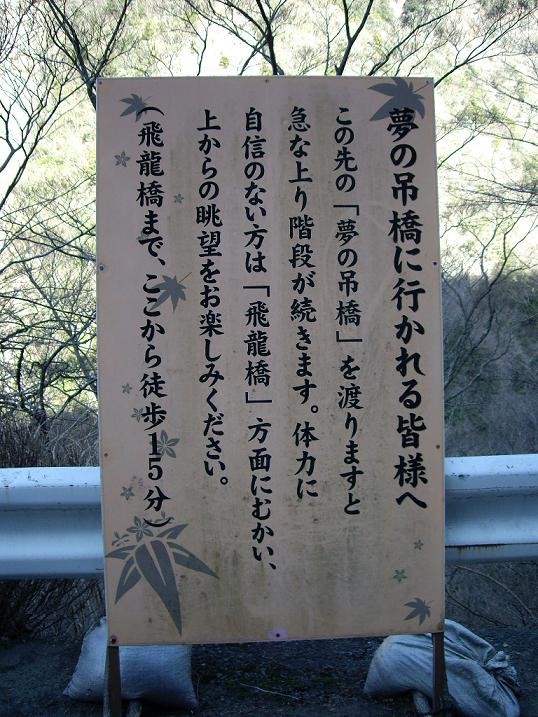 夢の吊橋に行かれる皆様へ
この先の「夢の吊橋」を渡りますと
急な上り階段が続きます。体力に
自信のない方は「飛龍橋」方面にむかい、
上からの眺望をお楽しみください。
（飛龍橋まで、ここから徒歩15分）